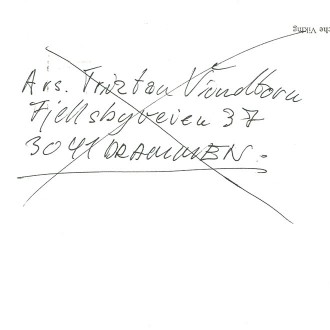 Ars. Triztan Vindtorn
Fjellsbyveien 37
3041 DRAMMEN.